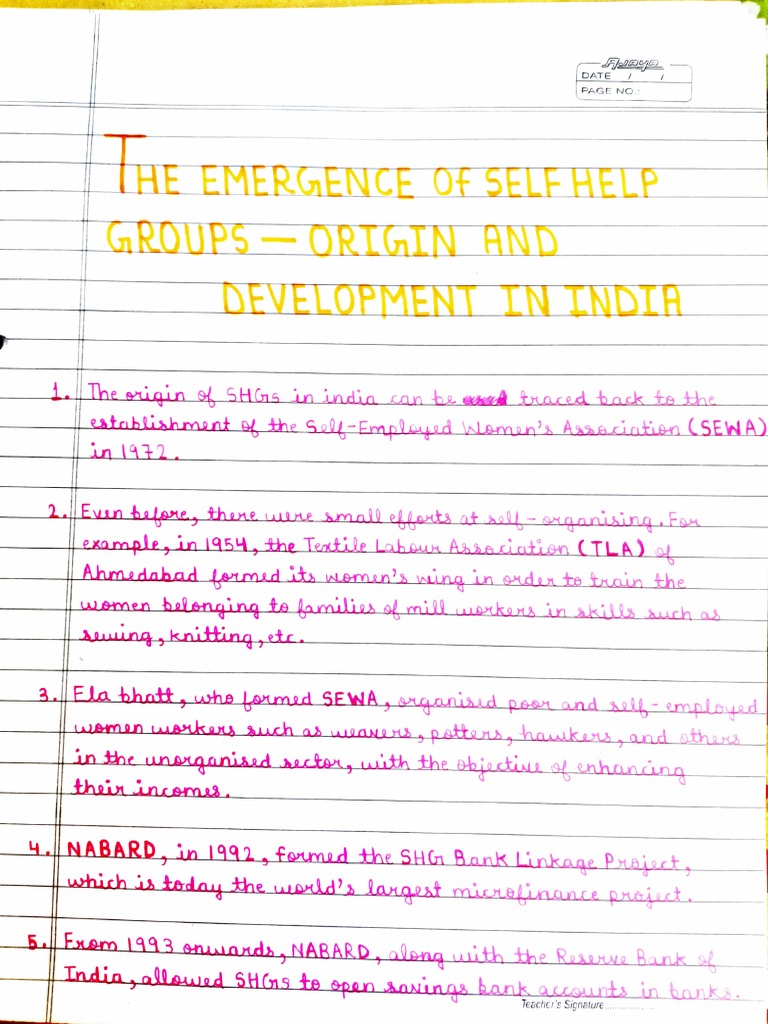 Ajaya
DATE / /
PAGE NO.:
THE EMERGENCE OF SELF HELP
GROUPS — ORIGIN AND
DEVELOPMENT IN INDIA
1. The origin of SHGs in india can be traced back to the
establishment of the Self-Employed Women's Association (SEWA)
in 1972.
2. Even before, there were small efforts at self-organising. For
example, in 1954, the Textile Labour Association (TLA) of
Ahmedabad formed its women's wing in order to train the
women belonging to families of mill workers in skills such as
sewing, knitting, etc.
3. Ela bhatt, who formed SEWA, organised poor and self-employed
women workers such as weavers, potters, hawkers, and others
in the unorganised sector, with the objective of enhancing
their incomes.
4. NABARD, in 1992, formed the SHG Bank Linkage Project,
which is today the world's largest microfinance project.
5. From 1993 onwards, NABARD, along with the Reserve Bank of
India, allowed SHGs to open savings bank accounts in banks.
Teacher's Signature..................